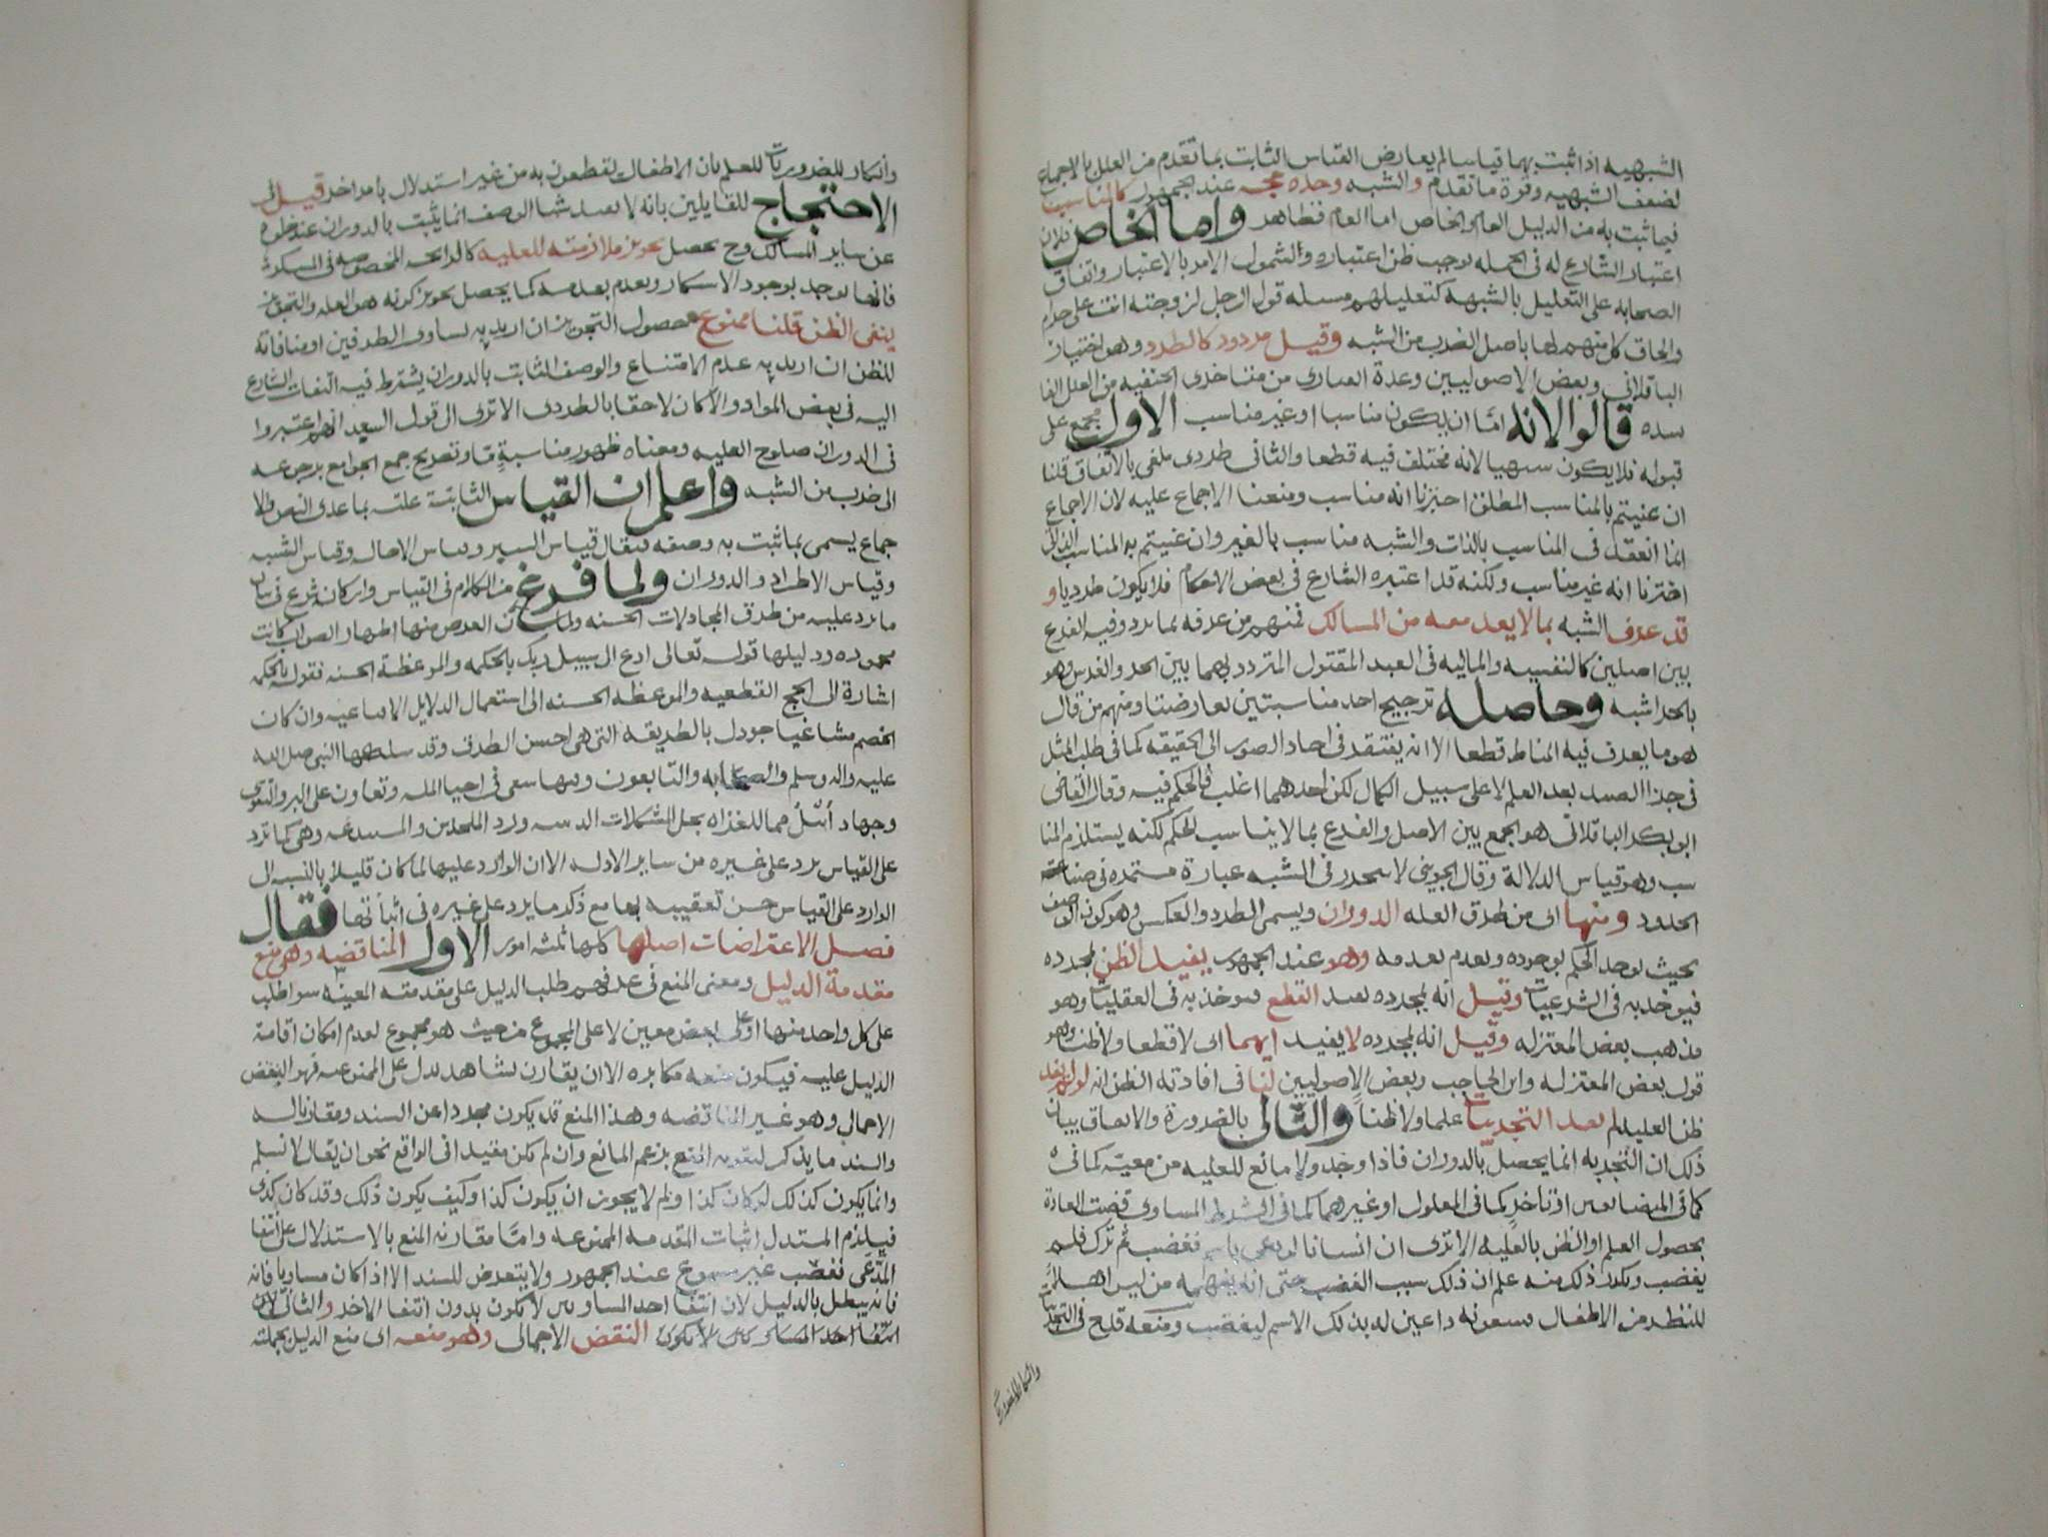 الشبهيه اذا ثبت بها قياسا لم يعارض القياس الثابت بما تقدم من العلل بالاجماع
لضعف الشبهيه وقوة ما تقدم والشبه وحده حجه عند الجمهور كالمناسب
فيما ثبت به من الدليل العام والخاص اما العام فظاهر واما الخاص فلان
اعتبار الشارع له في الجمله يوجب ظن اعتباره والشمول الامر بالاعتبار واتفاق
الصحابه على التعليل بالشبهه كتعليلهم مسله قول الرجل لزوجته انت علي حرام
والحاق كل منهم لها باصل لضرب من الشبه وقيل مردود كالطرد وهو اختيار
الباقلاني وبعض الاصوليين وعده من متاخري الحنفيه من العلل الفا
سده قالوا لانه اما ان يكون مناسبا او غير مناسب الاول مجمع على
قبوله فلا يكون شبهيا لانه مختلف فيه قطعا والثاني طردي ملغى بالاتفاق قلنا
ان عنيتم بالمناسب المطلق اخترنا انه مناسب ومنعنا الاجماع عليه لان الاجماع
انما انعقد في المناسب بالذات والشبه مناسب بالغير وان عنيتم به المناسب الذاتي
اخترنا انه غير مناسب ولكنه قد اعتبره الشارع في بعض الاحكام فلا يكون طرديا و
قد عرف الشبه بما لا يعد معه من المسالك فمنهم من عرفه بما تردد فيه الفرع
بين اصلين كالنفسيه والماليه في العبد المقتول المتردد بهما بين الحر والفرس وهو
بالحر اشبه وحاصله ترجيح احد مناسبتين تعارضتا ومنهم من قال
هو ما يعرف فيه المناط قطعا الا انه يفتقد في احاد الصور الى الحقيقه كما في طلب المثل
في جزا الصيد بعد العلم لا على سبيل الكمال لكن احدهما اغلب فالحكم فيه وقال القاضي
ابو بكر الباقلاني هو الجمع بين الاصل والفرع بما لا يناسب الحكم لكنه يستلزم المنا
سب وهو قياس الدلالة وقال الجويني لا يتحرر في الشبه عبارة مستمره في صناعة
الحدود ومنها اى من طرق العله الدوران ويسمى الطرد والعكس وهو كون الوصف
بحيث يوجد الحكم بوجوده ويعدم بعدمه وهو عند الجمهور يفيد الظن بمجرده
فيوخذ به في الشرعيات وقيل انه بمجرده يفيد القطع فيوخذ به في العقليات وهو
مذهب بعض المعتزله وقيل انه بمجرده لا يفيد ايهما اى لا قطعا ولا ظنا وهو
قول بعض المعتزله وابن الحاجب وبعض الاصوليين لنا في افادته الظن انه لو لم يفد
ظن العليه لم يفد التجريبات علما ولا ظنا والتالي بالضرورة والاتفاق بيان
ذلك ان التجربه انما يحصل بالدوران فاذا وجد ولا مانع للعليه من معيته كما في
كما في المتضايفين او تاخر كما في المعلول او غيرهما كما في الشرط المساوى قضت العادة
بحصول العلم او الظن بالعليه الا ترى ان انسانا لو دعي باسم فغضب ثم ترك فلم
يغضب وتكرر ذلك منه علم ان ذلك سبب الغضب حتى انه يفهمه من ليس اهلا
للنظر من الاطفال فيتبعونه داعين له بذلك الاسم ليغضب ومنعه قدح في التجريبات
وانكار للضروريات
وانكار للضروريات للعلم بان الاطفال يقطعون به من غير استدلال بامر اخر قيل في
الاحتجاج للقايلين بانه لا يفيد شيا الوصف انما يثبت بالدوران عند خلوه
عن ساير المسالك وح يحصل تجويز ملازمته للعليه كالرائحه المخصوصه في المسكر
فانها توجد بوجود الاسكار وتعدم بعدمه كما يحصل تجويز كونه هو العله والتجويز
ينفي الظن قلنا ممنوع حصول التجويز ان اريد به تساوى الطرفين او منافاته
للظن ان اريد به عدم الامتناع والوصف الثابت بالدوران يشترط فيه التفات الشارع
اليه في بعض المواد والا كان لاحقا بالطردى الا ترى الى قول السعيد انهم اعتبروا
في الدوران صلوح العليه ومعناه ظهور مناسبة ما وتصريح جمع الجوامع برجوعه
الى ضرب من الشبه واعلم ان القياس الثابتة علته بما عدى النص والا
جماع يسمى بما ثبت به وصفه فيقال قياس السبر وقياس الاخاله وقياس الشبه
وقياس الاطراد والدوران ولما فرغ من الكلام في القياس واركانه شرع في بيان
ما يرد عليه من طرق المجادلات الحسنه ولما كان الغرض منها اظهار الصواب كانت
محموده ودليلها قوله تعالى ادع الى سبيل ربك بالحكمه والموعظة الحسنه فقوله بالحكمه
اشارة الى الحجج القطعيه والموعظه الحسنه الى استعمال الدلايل الاقناعيه وان كان
الخصم مشاغبا جودل بالطريقه التي هي احسن الطرق وقد سلكها النبي صلى الله
عليه واله وسلم والصحابه والتابعون وفيها سعي في احيا المله وتعاون على البر والتقوى
وجهاد مماثل للغزاه بحل المشكلات الدينيه ورد الملحدين والمبتدعه وهي كما ترد
على القياس يرد على غيره من ساير الادله الا ان الوارد عليها لما كان قليلا بالنسبه الى
الوارد على القياس حسن تعقيبه بها مع ذكر ما يرد على غيره في اثنائها فقال
فصل الاعتراضات اصلها كلها ثلثه امور الاول المناقضه وهي منع
مقدمة الدليل ومعنى المنع في عرفهم طلب الدليل على مقدمته المعينه سوا طلب
على كل واحد منها او على بعض معين لا على المجموع من حيث هو مجموع لعدم امكان اقامة
الدليل عليه فيكون منعه مكابره الا ان يقارن بشاهد يدل على الممنوعيه فهو النقض
الاجمالي وهو غير المناقضه وهذا المنع قد يكون مجردا عن السند ومقارنا له
والسند ما يذكر لتقويه المنع بزعم المانع وان لم يكن مفيدا في الواقع نحو ان يقال لا نسلم
وانما يكون كذلك لو كان كذا او لم لا يجوز ان يكون كذا وكيف يكون ذلك وقد كان كذى
فيلزم المستدل اثبات المقدمه الممنوعه واما مقارنه المنع بالاستدلال على انتفا
المدعى فغصب غير مسموع عند الجمهور ولا يتعرض للسند الا اذا كان مساويا فانه
فانه يبطل بالدليل لان انتفا احد المساويين لا يكون بدون انتفا الاخر والثاني لان
انتفا احد المساويين لا يكون النقض الاجمالي وهو منعه اى منع الدليل بجملته